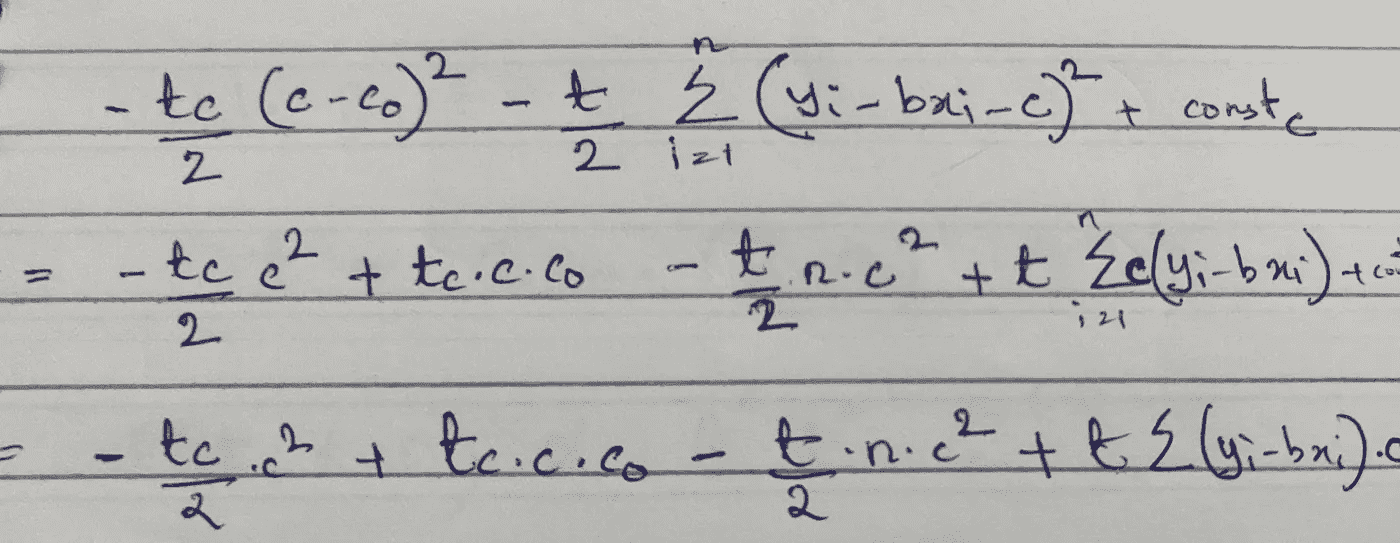 - tc/2 (c-c₀)² - t/2 Σ_{i=1}^{n} (yᵢ - bxᵢ - c)² + const_c
= - tc/2 c² + tc.c.c₀ - t/2 .n.c² + t Σ_{i=1}^{n} c(yᵢ-bxᵢ) +
= - tc/2 .c² + tc.c.c₀ - t/2 .n.c² + t Σ (yᵢ-bxᵢ).c